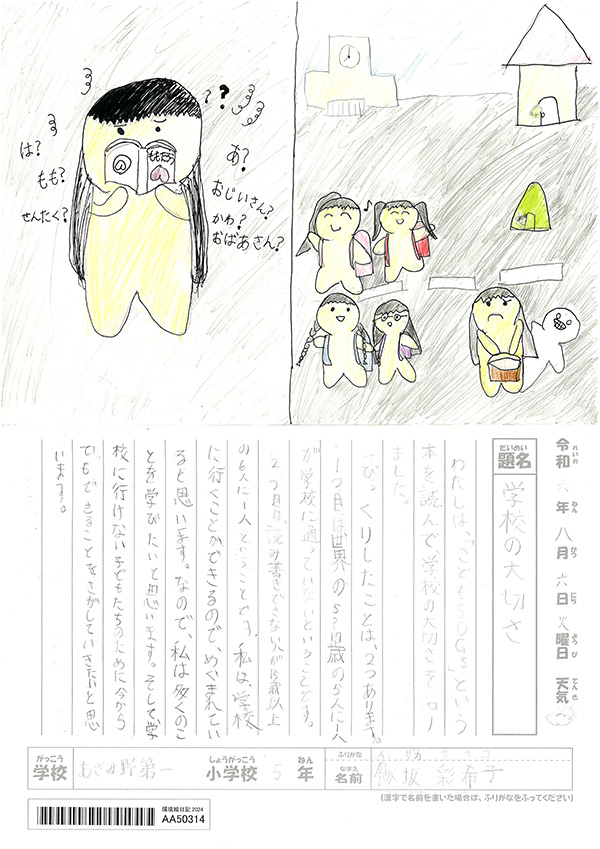 は?
もも?
せんたく?
? ?
あ?
おじいさん?
かわ?
おばあさん?
ももたろう
令和六年八月六日火曜日 天気
れいわ ねん がつ にち ようび てんき
だいめい
題名
学校の大切さ
わたしは、「こどもSDGs」という
本を読んで学校の大切さを知り
ました。
びっくりしたことは、2つあります。
1つ目は世界の5~17歳の5人に1人
が学校に通っていないということです。
2つ目は、読み書きできない人が15歳以上
の6人に1人ということです。私は、学校
に行くことができるので、めぐまれてい
ると思います。なので、私は多くのこ
とを学びたいと思います。そして学
校に行けない子どもたちのために今から
でもできることをさがしていきたいと思
います。
がっこう しょうがっこう ねん
学校 あざみ野第一 小学校 5年
ふりがな
なまえ
名前 飯坂 彩希子
(漢字で名前を書いた場合は、ふりがなをふってください)
環境絵日記2024
AA50314